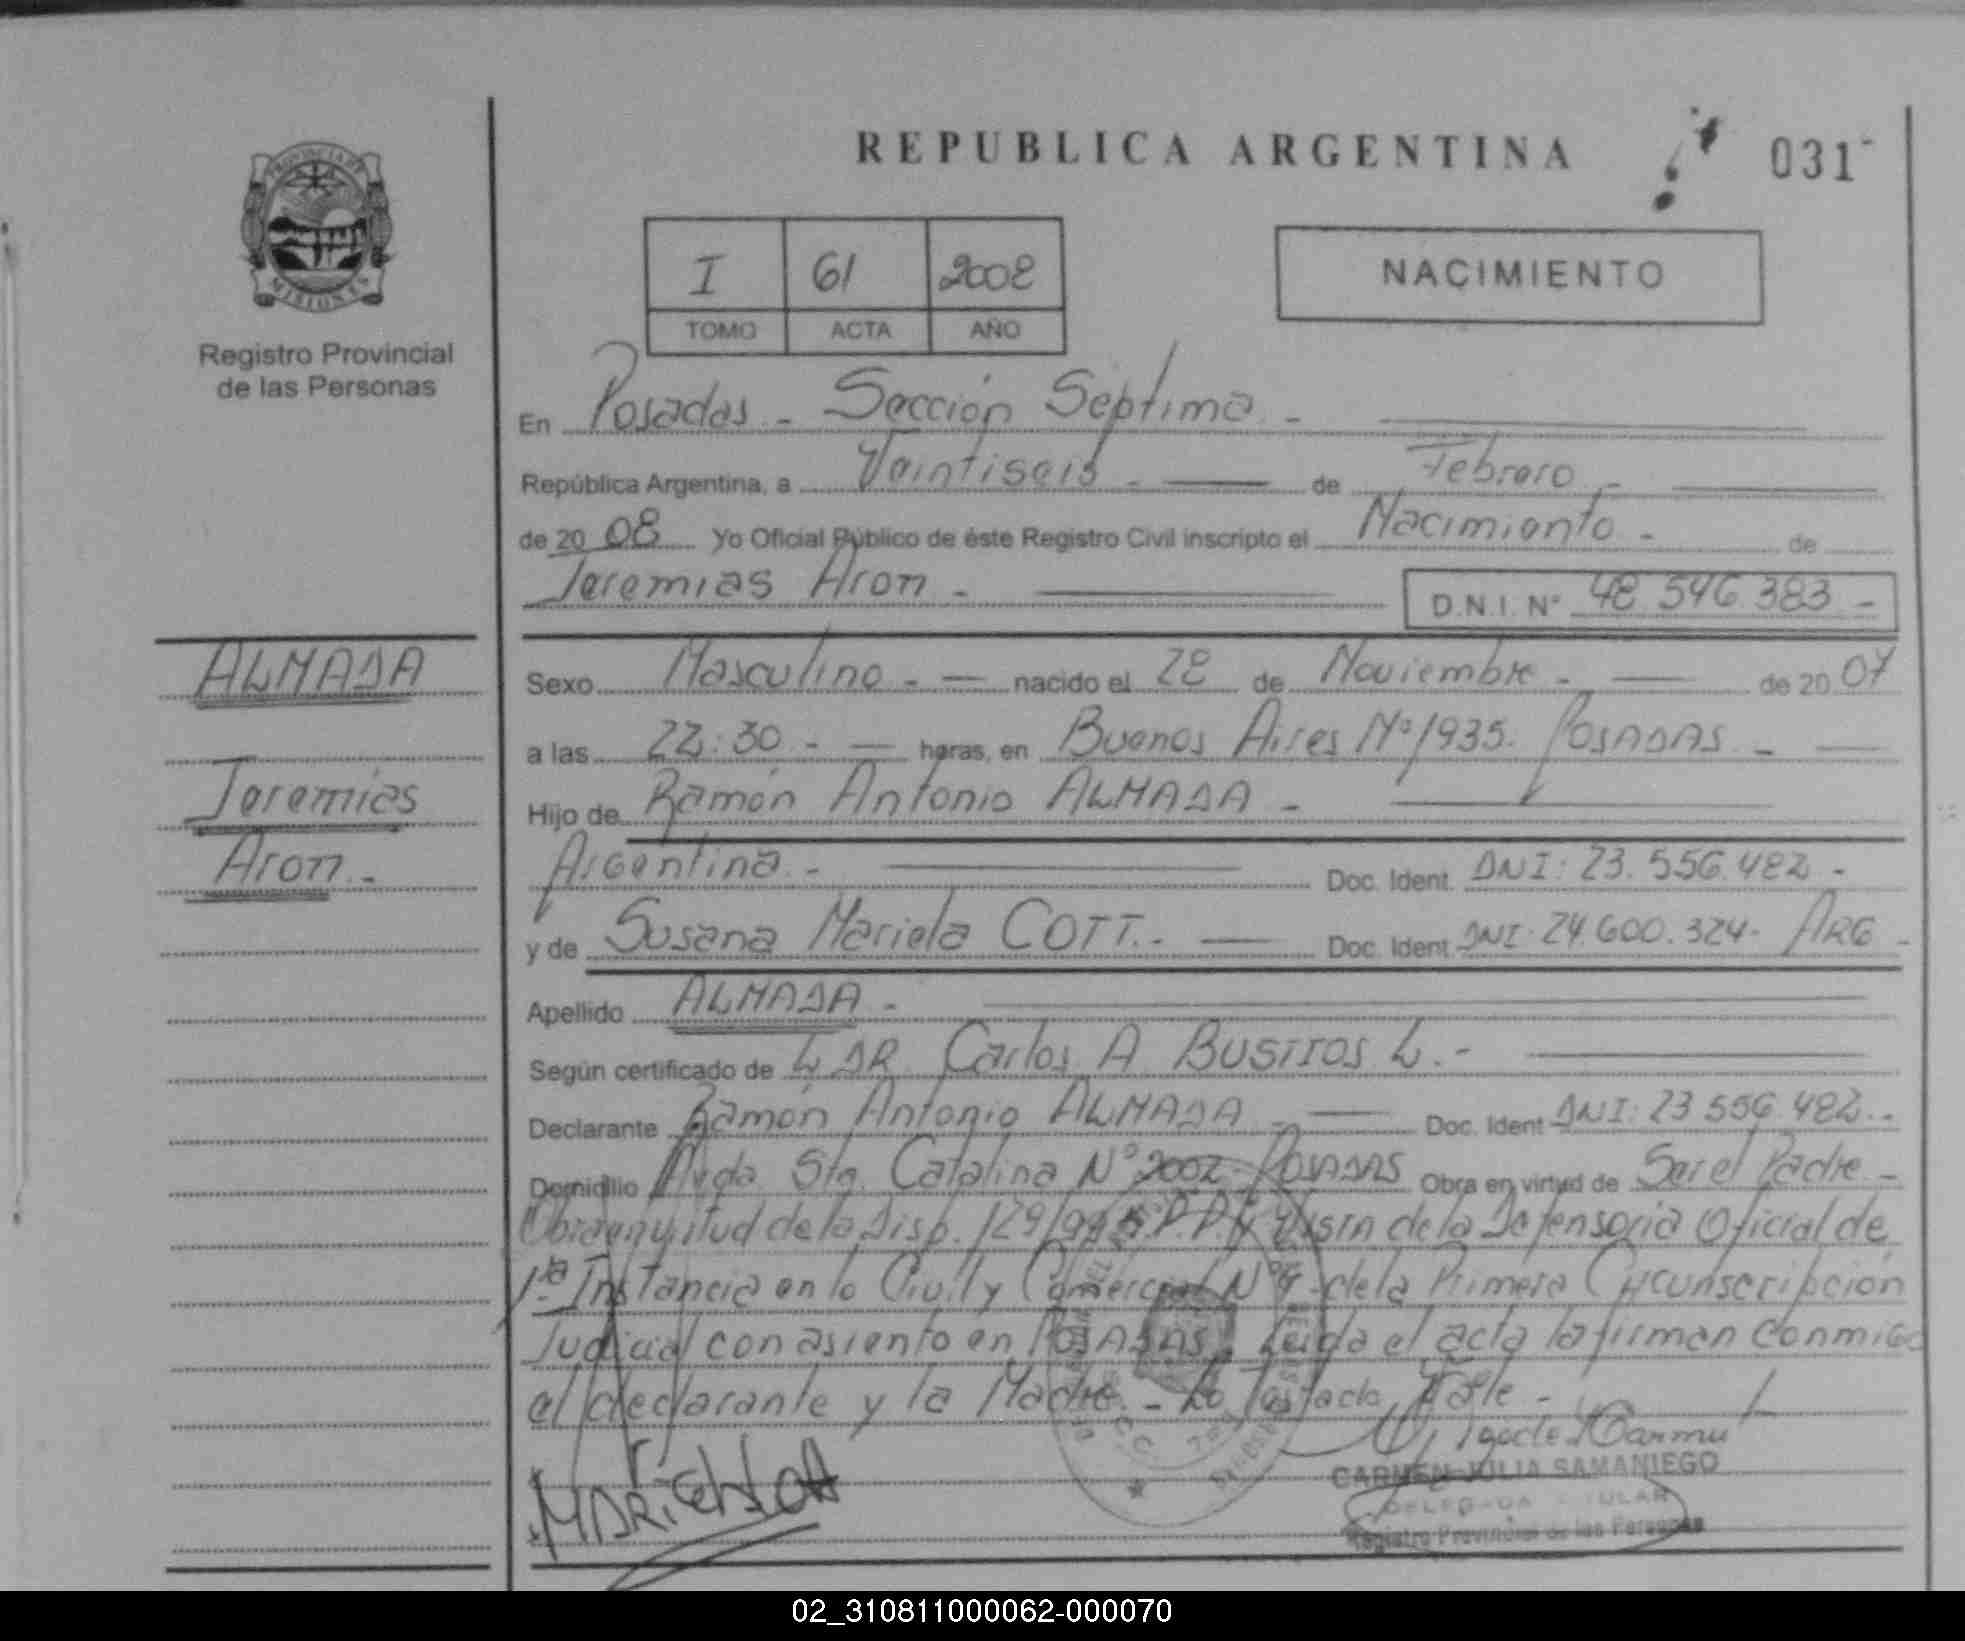 REPUBLICA ARGENTINA
031
PROVINCIA DE
MISIONES
Registro Provincial
de las Personas
I 61 2008
TOMO ACTA AÑO
NACIMIENTO
En Posadas - Sección Séptima -
República Argentina, a Veintiseis - de Febrero -
de 20 08 Yo Oficial Público de éste Registro Civil inscripto el Nacimiento - de
Jeremias Aron - D.N.I. Nº 48.546.383 -
ALMADA
Jeremias
Aron.-
Sexo Masculino - nacido el 28 de Noviembre - de 20 07
a las 22:30 - horas, en Buenos Aires Nº 1935. POSADAS -
Hijo de Ramón Antonio ALMADA -
Argentina.- Doc. Ident. DNI: 23.556.482 -
y de Susana Mariela COTT.- Doc. Ident. DNI: 24.600.324- ARG -
Apellido ALMADA -
Según certificado de L DR. Carlos A BUSTTOS L.-
Declarante Ramón Antonio ALMADA - Doc. Ident DNI: 23.556.482.-
Domicilio Avda. Sta. Catalina Nº 2002- POSADAS Obra en virtud de Ser el Padre.-
de la Disp. 129/99 de la Defensoria Oficial de
1ra Instancia en lo Civil y Comercial Nº de la Primera Circunscripción
Judicial con asiento en POSADAS. Leida el acta la firman conmigo
el declarante y la Madre.- Lo Testado Vale -
CARMEN JULIA SAMANIEGO
DELEGADA TITULAR
Registro Provincial de las Personas
02_310811000062-000070